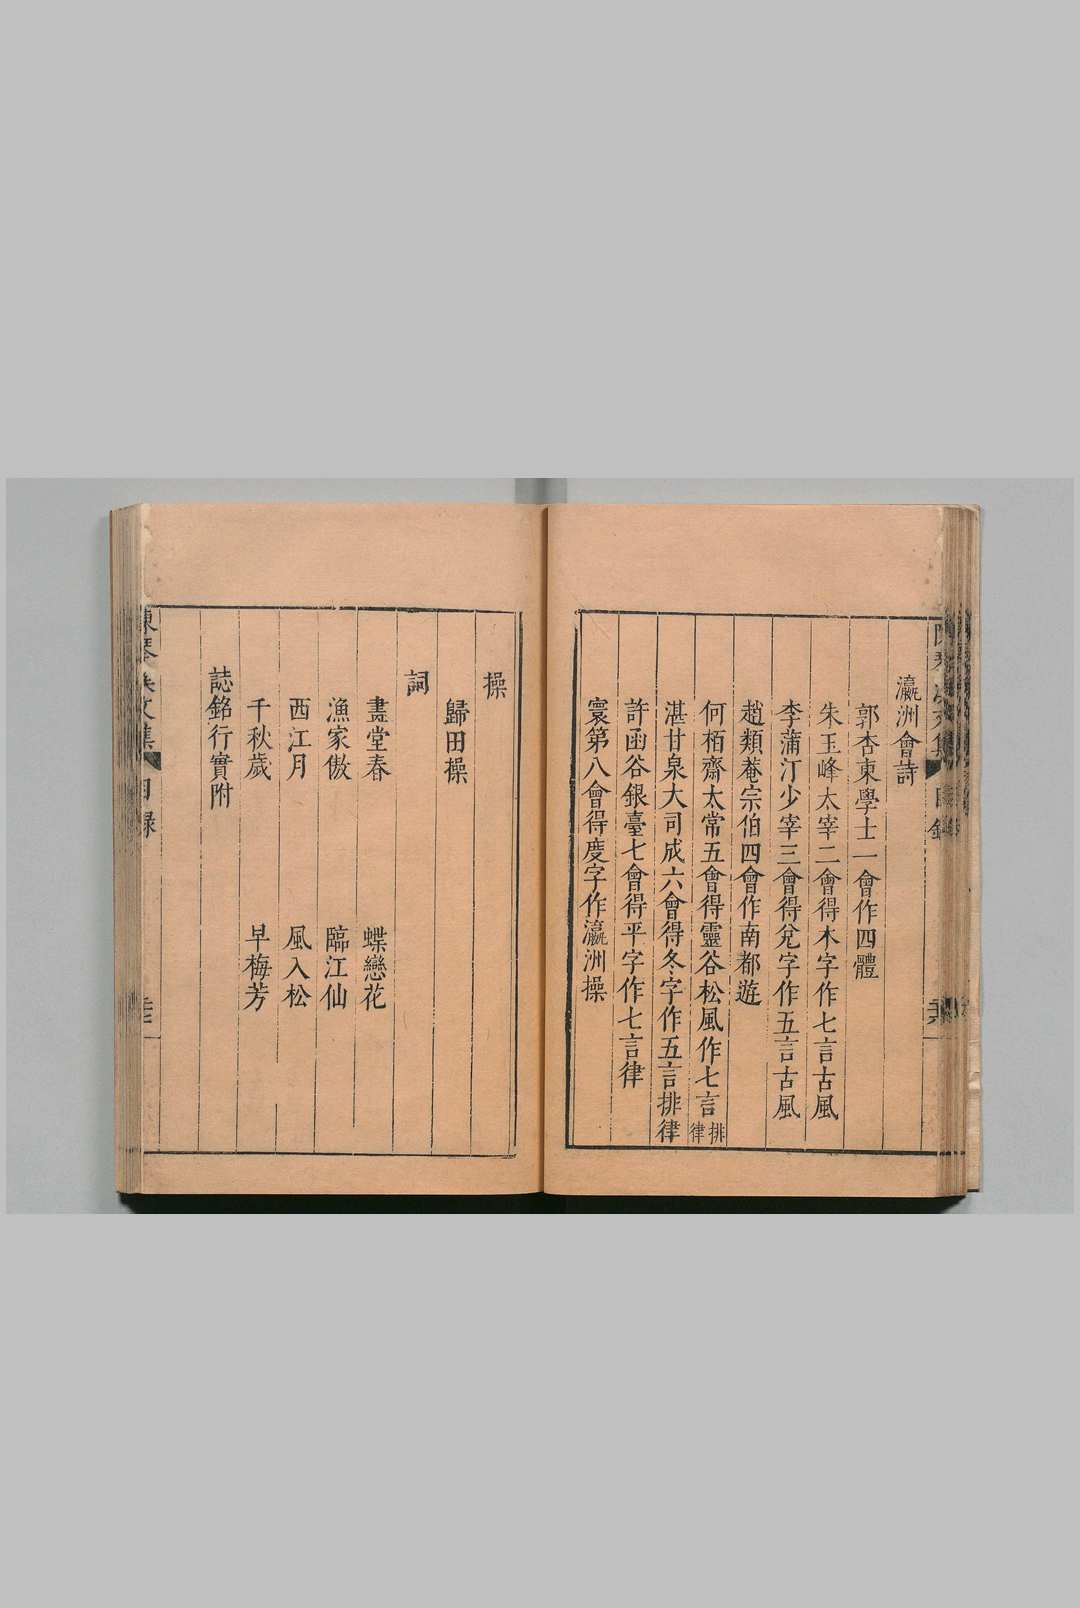 瀛洲會詩
郭杏東學士一會作四體
朱玉峰太宰二會得木字作七言古風
李蒲汀少宰三會得兌字作五言古風
趙類菴宗伯四會作南都遊
何栢齋太常五會得靈谷松風作七言排律
湛甘泉大司成六會得冬字作五言排律
許函谷銀臺七會得平字作七言律
寰第八會得度字作瀛洲操
操
歸田操
詞
畫堂春 蝶戀花
漁家傲 臨江仙
西江月 風入松
千秋歲 早梅芳
誌銘行實附
文集 目録